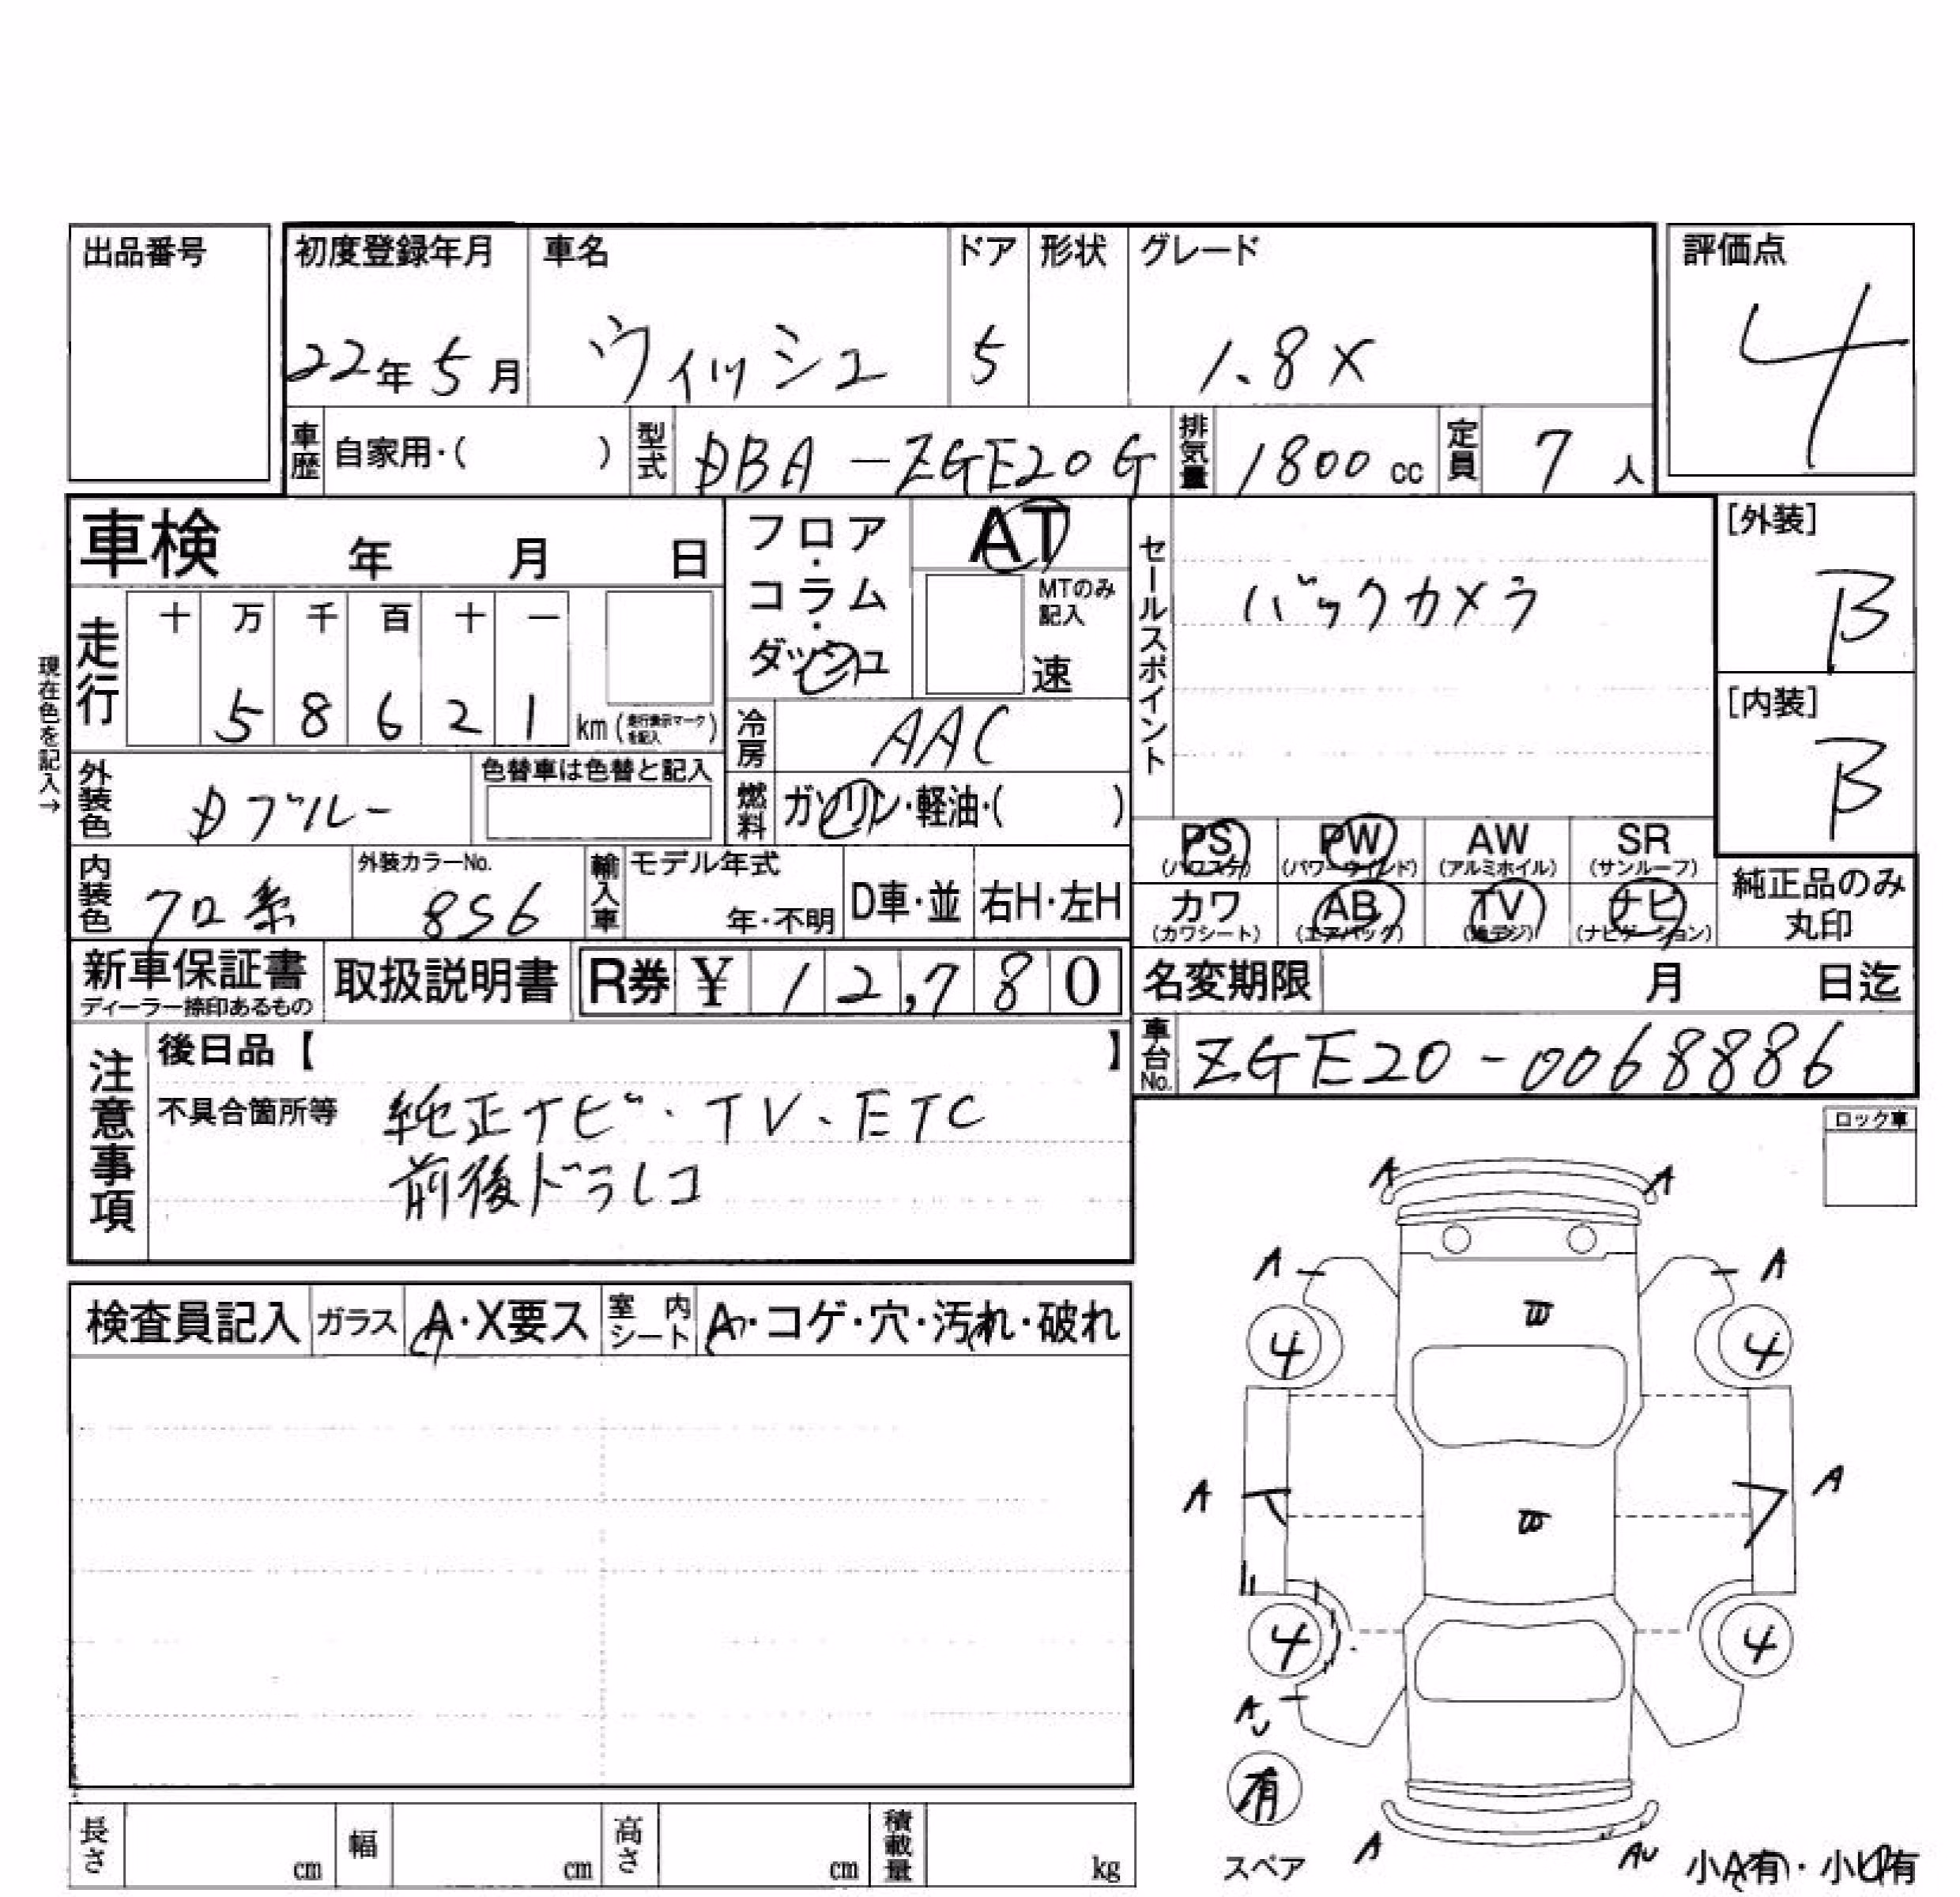 出品番号
初度登録年月 車名 ドア 形状 グレード 評価点
22年5月 ヴィッシュ 5 1.8X 4
車歴 自家用・( ) 型式 DBA-ZGE20G 排気量 1800cc 定員 7人
車検 年 月 日
フロア・コラム・ダッシュ
AT
MTのみ記入
速
セールスポイント
バックカメラ
[外装]
B
[内装]
B
現在色を記入→
走行 十 万 千 百 十 一
5 8 6 2 1 km (走行表示マークを記入)
冷房 AAC
外装色 Dブルー 色替車は色替と記入
燃料 ガソリン・軽油・( )
PS (パワステ) PW (パワーウインド) AW (アルミホイル) SR (サンルーフ)
カワ (カワシート) AB (エアバック) TV (地デジ) ナビ (ナビゲーション)
純正品のみ
丸印
内装色 クロ系 外装カラーNo. 8S6 輸入車 モデル年式 年・不明 D車・並 右H・左H
新車保証書 ディーラー捺印あるもの 取扱説明書 R券 ¥ 12,780
名変期限 月 日迄
車台No. ZGE20-0068886
注意事項
後日品【 】
不具合箇所等 純正ナビ・TV、ETC
前後ドラレコ
ロック車
検査員記入 ガラス A・X要ス 室内シート A・コゲ・穴・汚れ・破れ
A A
A A
4 4
A A
4 4
AU
有
スペア
A AU
小A有・小U有
長さ cm 幅 cm 高さ cm 積載量 kg